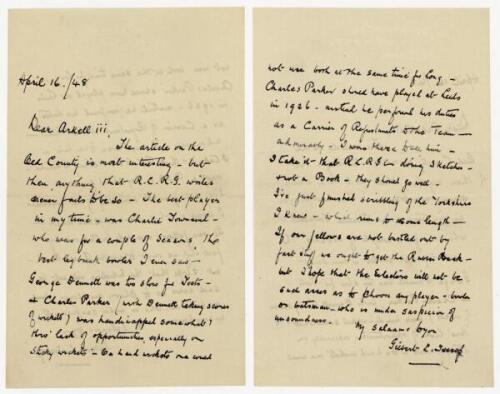 April 16./48
Dear Arkell iii,
The article on the
Old County is most interesting - but
then, anything that R.C.R.G. writes
never fails to be so - The best player
in my time - was Charlie Townsend -
who was for a couple of seasons, the
best leg break bowler I ever saw -
George Dennett was too slow for Tests -
& Charles Parker (with Dennett taking scores
of wickets) was handicapped somewhat
thro' lack of opportunities, especially on
sticky wickets - on hard wickets one could
not use both at the same time for long -
Charles Parker should have played at Leeds
in 1926 - instead he performed his duties
as a Carrier of Refreshments to the Team -
admirably - I was there to see him -
I take it that R.C.R.G is doing Sketches -
& not a Book - they should go well -
I've just finished scribbling of the Yorkshires
I knew - which runs to some length -
If our fellows are not bustled out by
fast stuff we ought to get the Rubber Back -
but I hope that the Selectors will not be
such asses as to choose any player - bowler
or batsman - who is under suspicion of
unsoundness.
My salaams to you
Gilbert L. Jessop